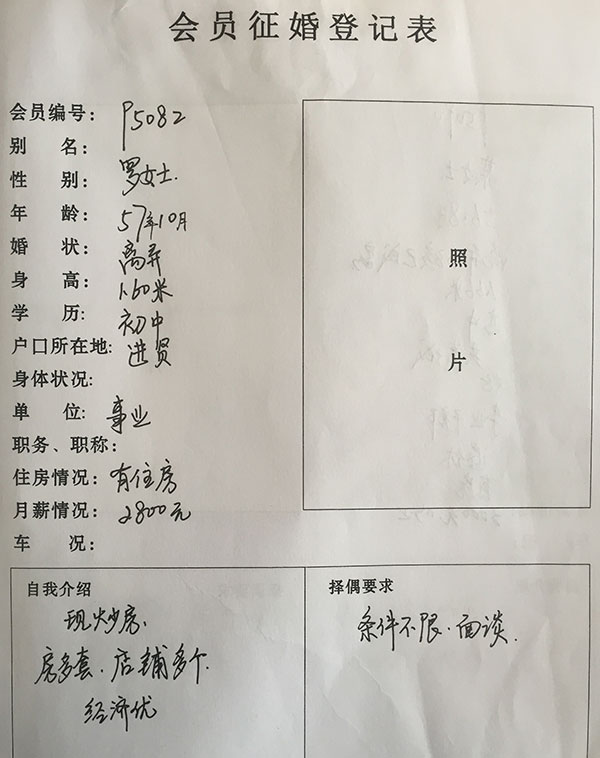 会员征婚登记表
会员编号: P5082
别 名:
性 别: 罗女士.
年 龄: 57年10月
婚 状: 离异
身 高: 1.60米
学 历: 初中
户口所在地: 进贤
身体状况:
单 位: 事业
职务、职称:
住房情况: 有住房
月薪情况: 2800元
车 况:
照
片
自我介绍
现炒房.
房多套.店铺多个.
经济优
择偶要求
条件不限.面谈.